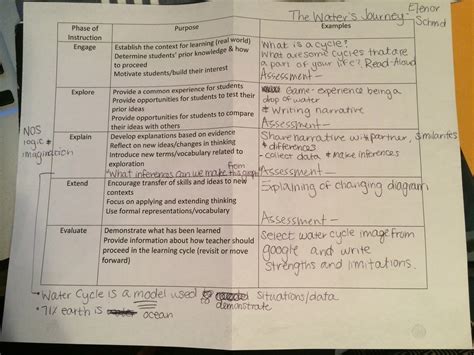 The Water's Journey- Elenor
Schmd
Phase of Instruction
Purpose
Examples
Engage
Establish the context for learning (real world)
Determine students' prior knowledge & how
to proceed
Motivate students/build their interest
What is a cycle?
What are some cycles that are
a part of your life?, Read-Aloud
Assessment-
Explore
Provide a common experience for students
Provide opportunities for students to test their
prior ideas
Provide opportunities for students to compare
their ideas with others
Game- experience being a
drop of water
* Writing narrative
Assessment-
NOS
logic &
imagination
Explain
Develop explanations based on evidence
Reflect on new ideas/changes in thinking
Introduce new terms/vocabulary related to
exploration
*What inferences can we make from this graph
Share narrative with partner, similarites
& differences
- collect data & make inferences
Assessment-
Extend
Encourage transfer of skills and ideas to new
contexts
Focus on applying and extending thinking
Use formal representations/vocabulary
Explaining of changing diagram
Assessment-
Evaluate
Demonstrate what has been learned
Provide information about how teacher should
proceed in the learning cycle (revisit or move
forward)
Select water cycle image from
google and write
strengths and limitations.
*Water Cycle is a model used to demonstrate situations/data
*71% earth is ocean